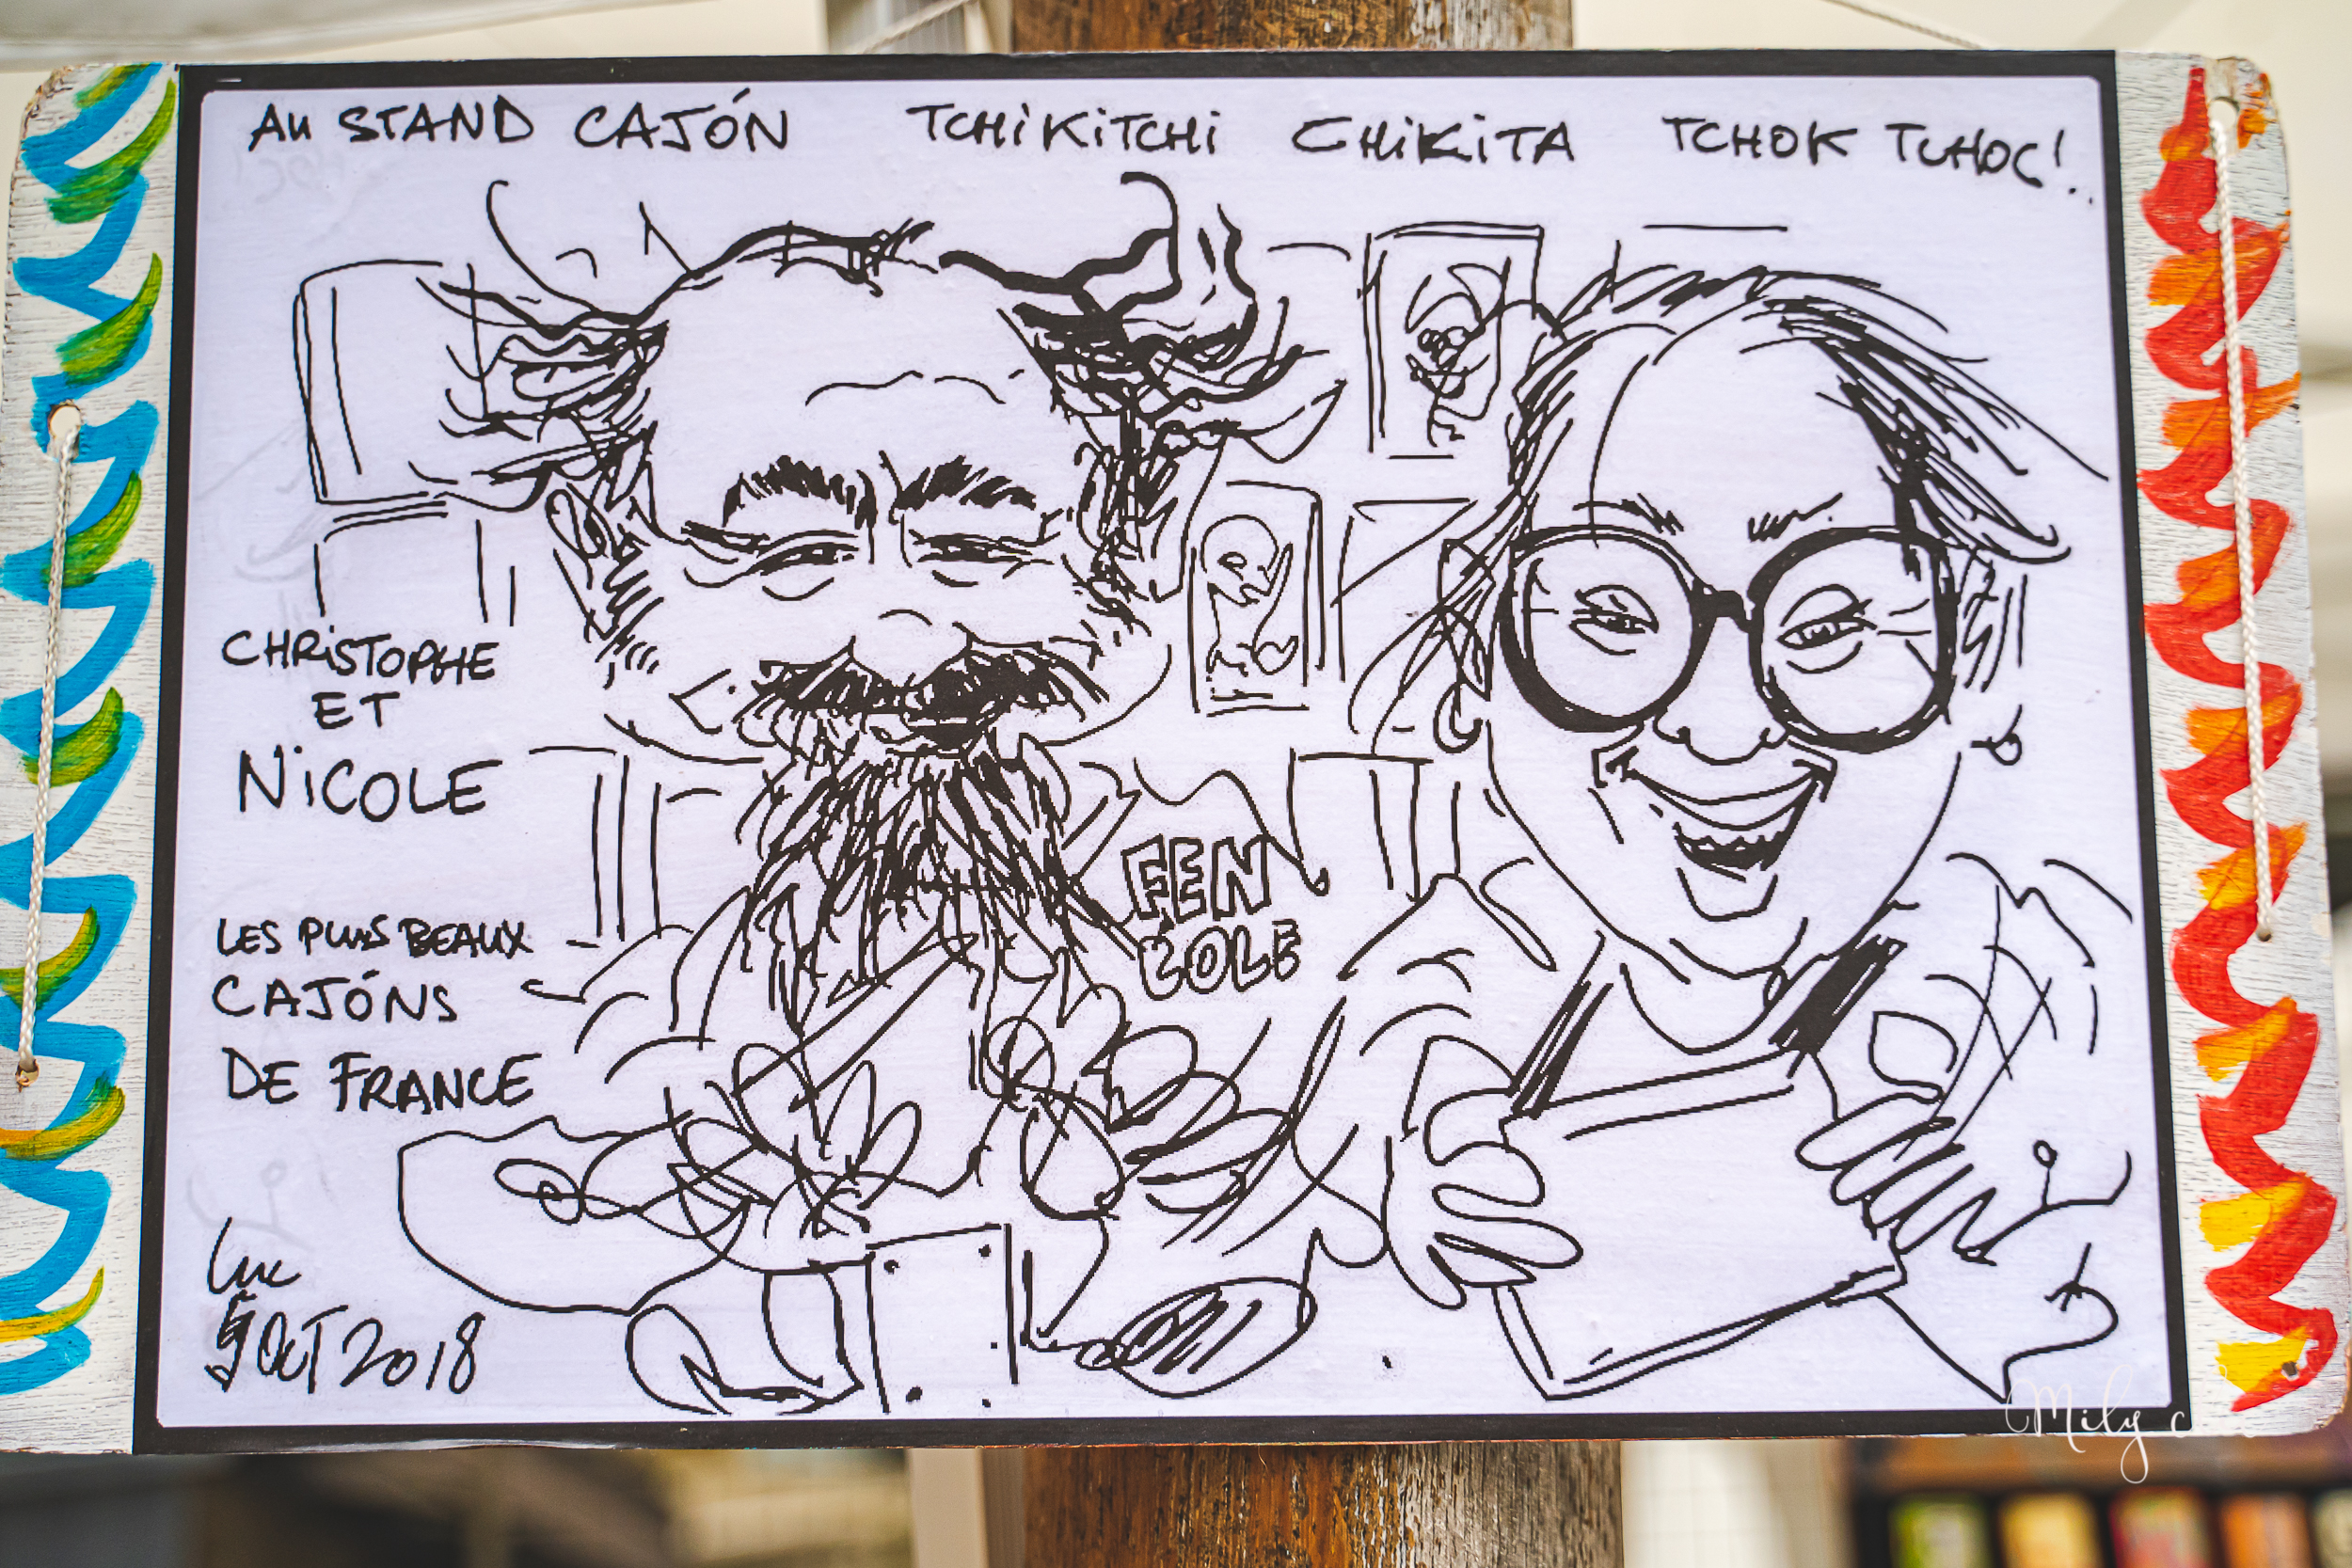 Au STAND CAJÓN TCHiKiTCHi CHiKiTA TCHOK TCHOC!..
CHRiSTOPHE
ET
NiCOLE
LES PLuS BEAUX
CAJÓNS
DE FRANCE
FEN
ZOLE
Luc
5 OCT 2018
Mily